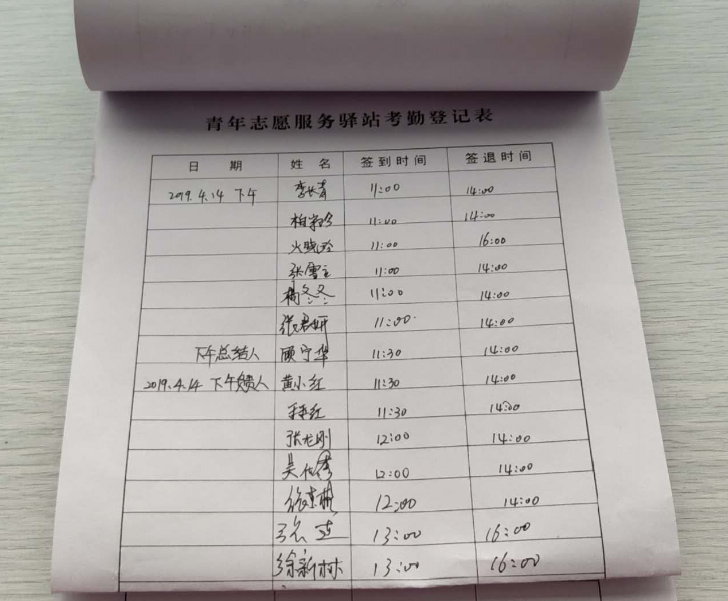 青年志愿服务驿站考勤登记表
日 期 姓 名 签到时间 签退时间
2019.4.14 下午 李长青 11:00 14:00
11:00 14:00
火晓玲 11:00 16:00
张雪 11:00 14:00
杨冬冬 11:00 14:00
张君妍 11:00 14:00
下午总结人 顾守华 11:30 14:00
2019.4.14 下午负责人 黄小红 11:30 14:00
11:30 14:00
张龙刚 12:00 14:00
吴 12:00 14:00
徐 12:00 14:00
张莲 13:00 16:00
徐新林 13:00 16:00